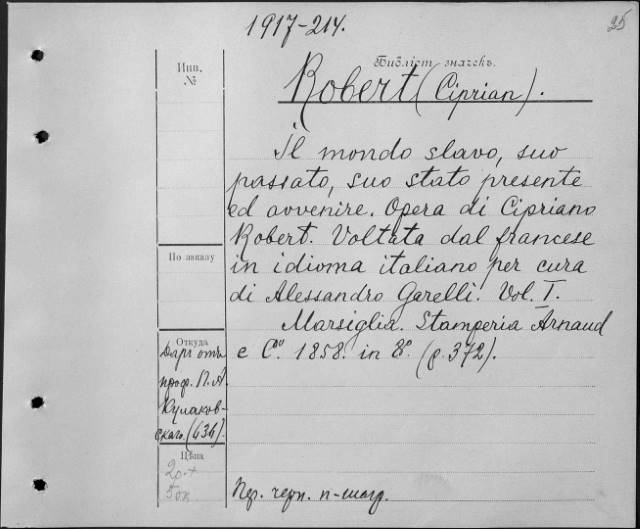 1917-214.
25
Инв.
№
Библіот. значекъ.
Robert (Ciprian).
Il mondo slavo, suo
passato, suo stato presente
ed avvenire. Opera di Cipriano
Robert. Voltata dal francese
in idioma italiano per cura
di Alessandro Garelli. Vol. I.
Marsiglia. Stamperia Arnaud
e Cº. 1858. in 8º. (p. 372).
По заказу
Откуда
Даръ отъ
проф. П. А.
Кулаков-
скаго (636).
Цѣна
2р.
50к
Пер. черн. п-шагр.